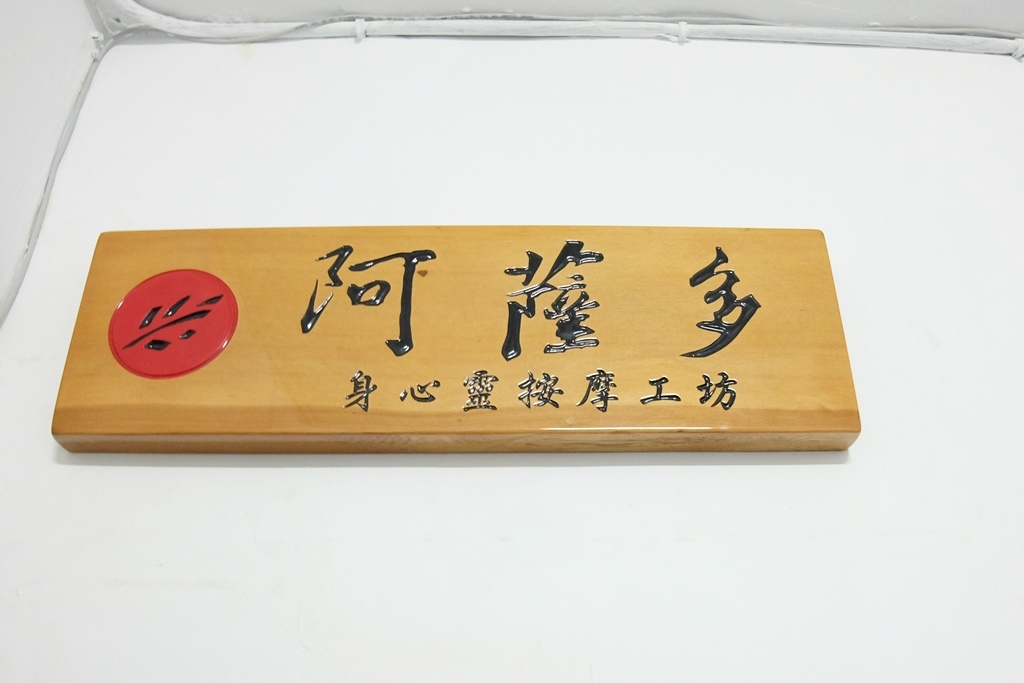 阿薩多
身心靈按摩工坊